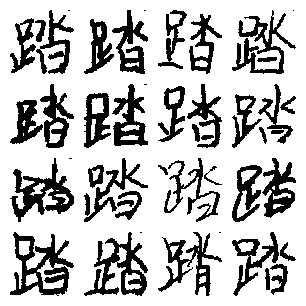 踏踏踏踏
踏踏踏踏
踏踏踏踏
踏踏踏踏